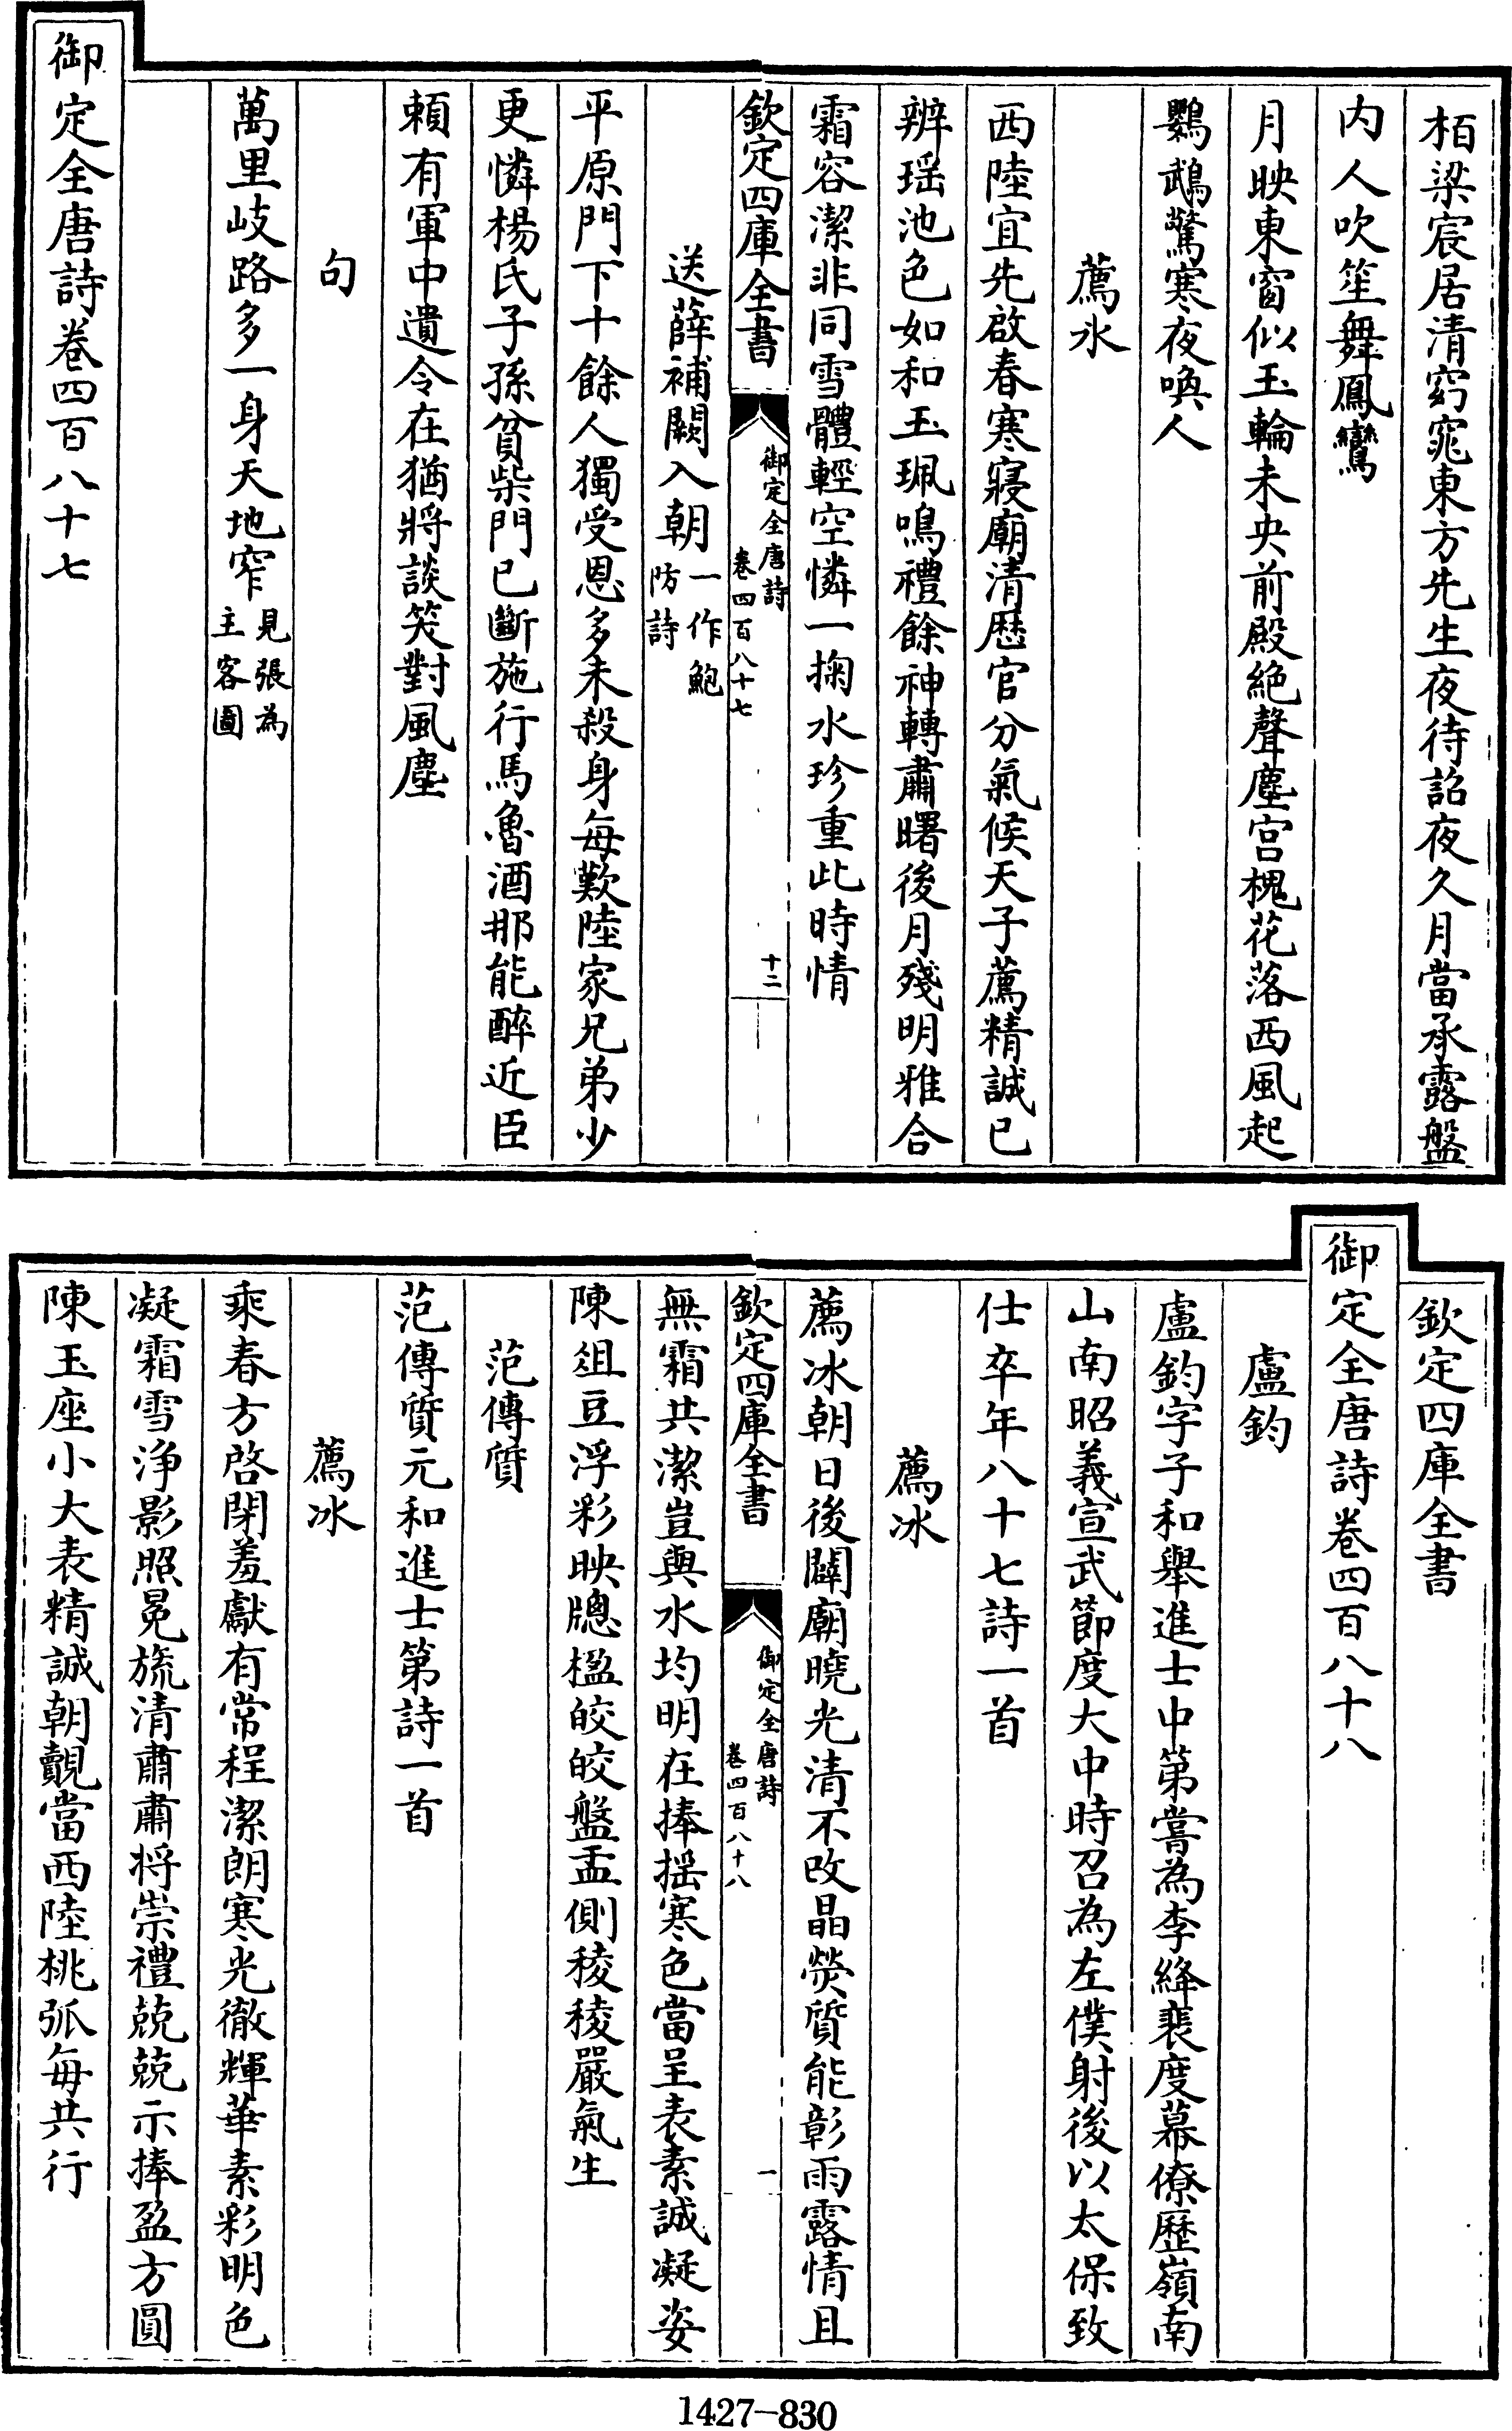 栢梁宸居清窈窕東方先生夜待詔夜久月當承露盤
内人吹笙舞鳳鸞
月映東窗似玉輪未央前殿絶聲塵宫槐花落西風起
鸚鵡驚寒夜喚人
薦氷
西陸宜先啟春寒寢廟清厯官分氣候天子薦精誠已
辨瑶池色如和玉珮鳴禮餘神轉肅曙後月殘明雅合
霜容潔非同雪體輕空憐一掬水珍重此時情
欽定四庫全書
御定全唐詩
卷四百八十七
十二
送薛補闕入朝一作鮑
防詩
平原門下十餘人獨受恩多未殺身每歎陸家兄弟少
更憐楊氏子孫貧柴門已斷施行馬魯酒那能醉近臣
頼有軍中遺令在猶將談笑對風塵
句
萬里岐路多一身天地窄見張為
主客圖
御定全唐詩卷四百八十七
欽定四庫全書
御定全唐詩卷四百八十八
盧鈞
盧鈞字子和舉進士中第嘗為李絳裴度幕僚歷嶺南
山南昭義宣武節度大中時召為左僕射後以太保致
仕卒年八十七詩一首
薦冰
薦冰朝日後闢廟曉光清不改晶熒質能彰雨露情且
欽定四庫全書
御定全唐詩
卷四百八十八
一
無霜共潔豈與水均明在捧揺寒色當呈表素誠凝姿
陳俎豆浮彩映牕楹皎皎盤盂側稜稜嚴氣生
范傳質
范傳質元和進士第詩一首
薦冰
乘春方啓閉羞獻有常程潔朗寒光徹輝華素彩明色
凝霜雪浄影照冕旒清肅肅将崇禮兢兢示捧盈方圓
陳玉座小大表精誠朝覿當西陸桃弧每共行
1427-830